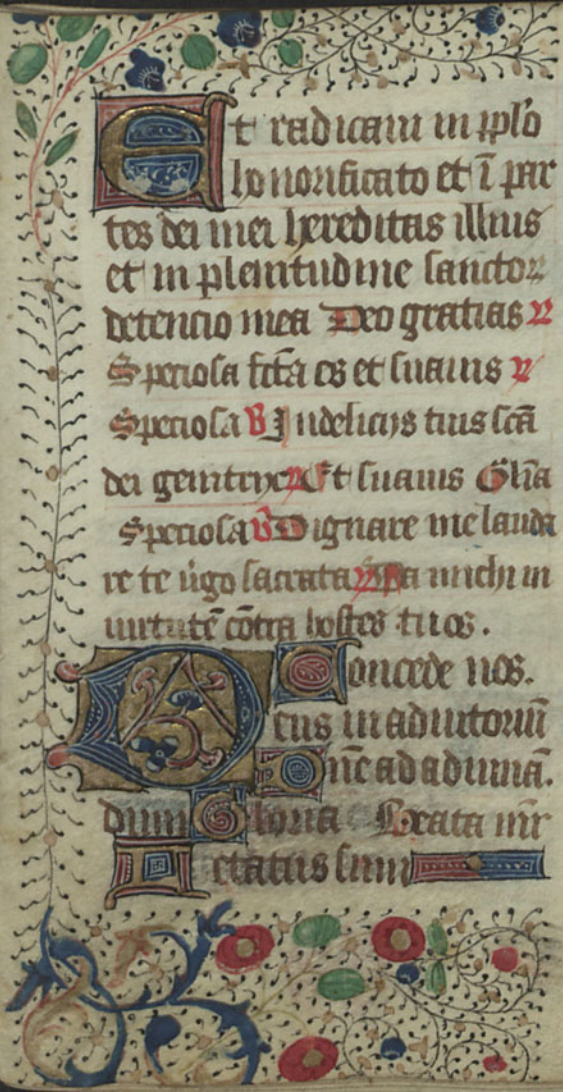 Et radicaui in ip̄lo
honorificato et ī par
tes dei mei hereditas illius
et in plenitudine sanctoꝝ
detencio mea Deo gratias ℣
Speciosa fc̄ta es et suauis ℣
Speciosa ℣ In delicijs tuis sc̄a
dei genitryx ℣ Et suauis Gl̄ia
Speciosa ℣ Dignare me lauda
re te ūgo sacrata ℣ Da michi in
uirtutē cōtra hostes tuos.
Concede nos.
Deus in adiutoriū
Dn̄e ad adiuuā.
dum Gloria Beata m̄r
Letatus sum